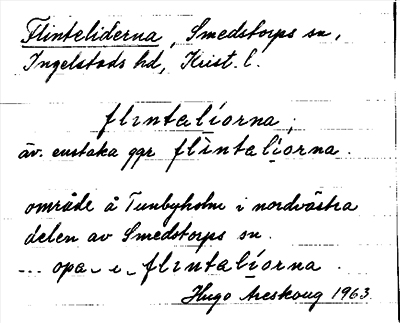 Flinteliderna, Smedstorps sn,
Ingelstads hd, Krist. l.
flıntalíorna,
äv. enstaka ggr flìntalíorna.
område å Tunbyholm i nordvästra
delen av Smedstorps sn.
... opa- i- flıntalíorna.
Hugo Areskoug 1963